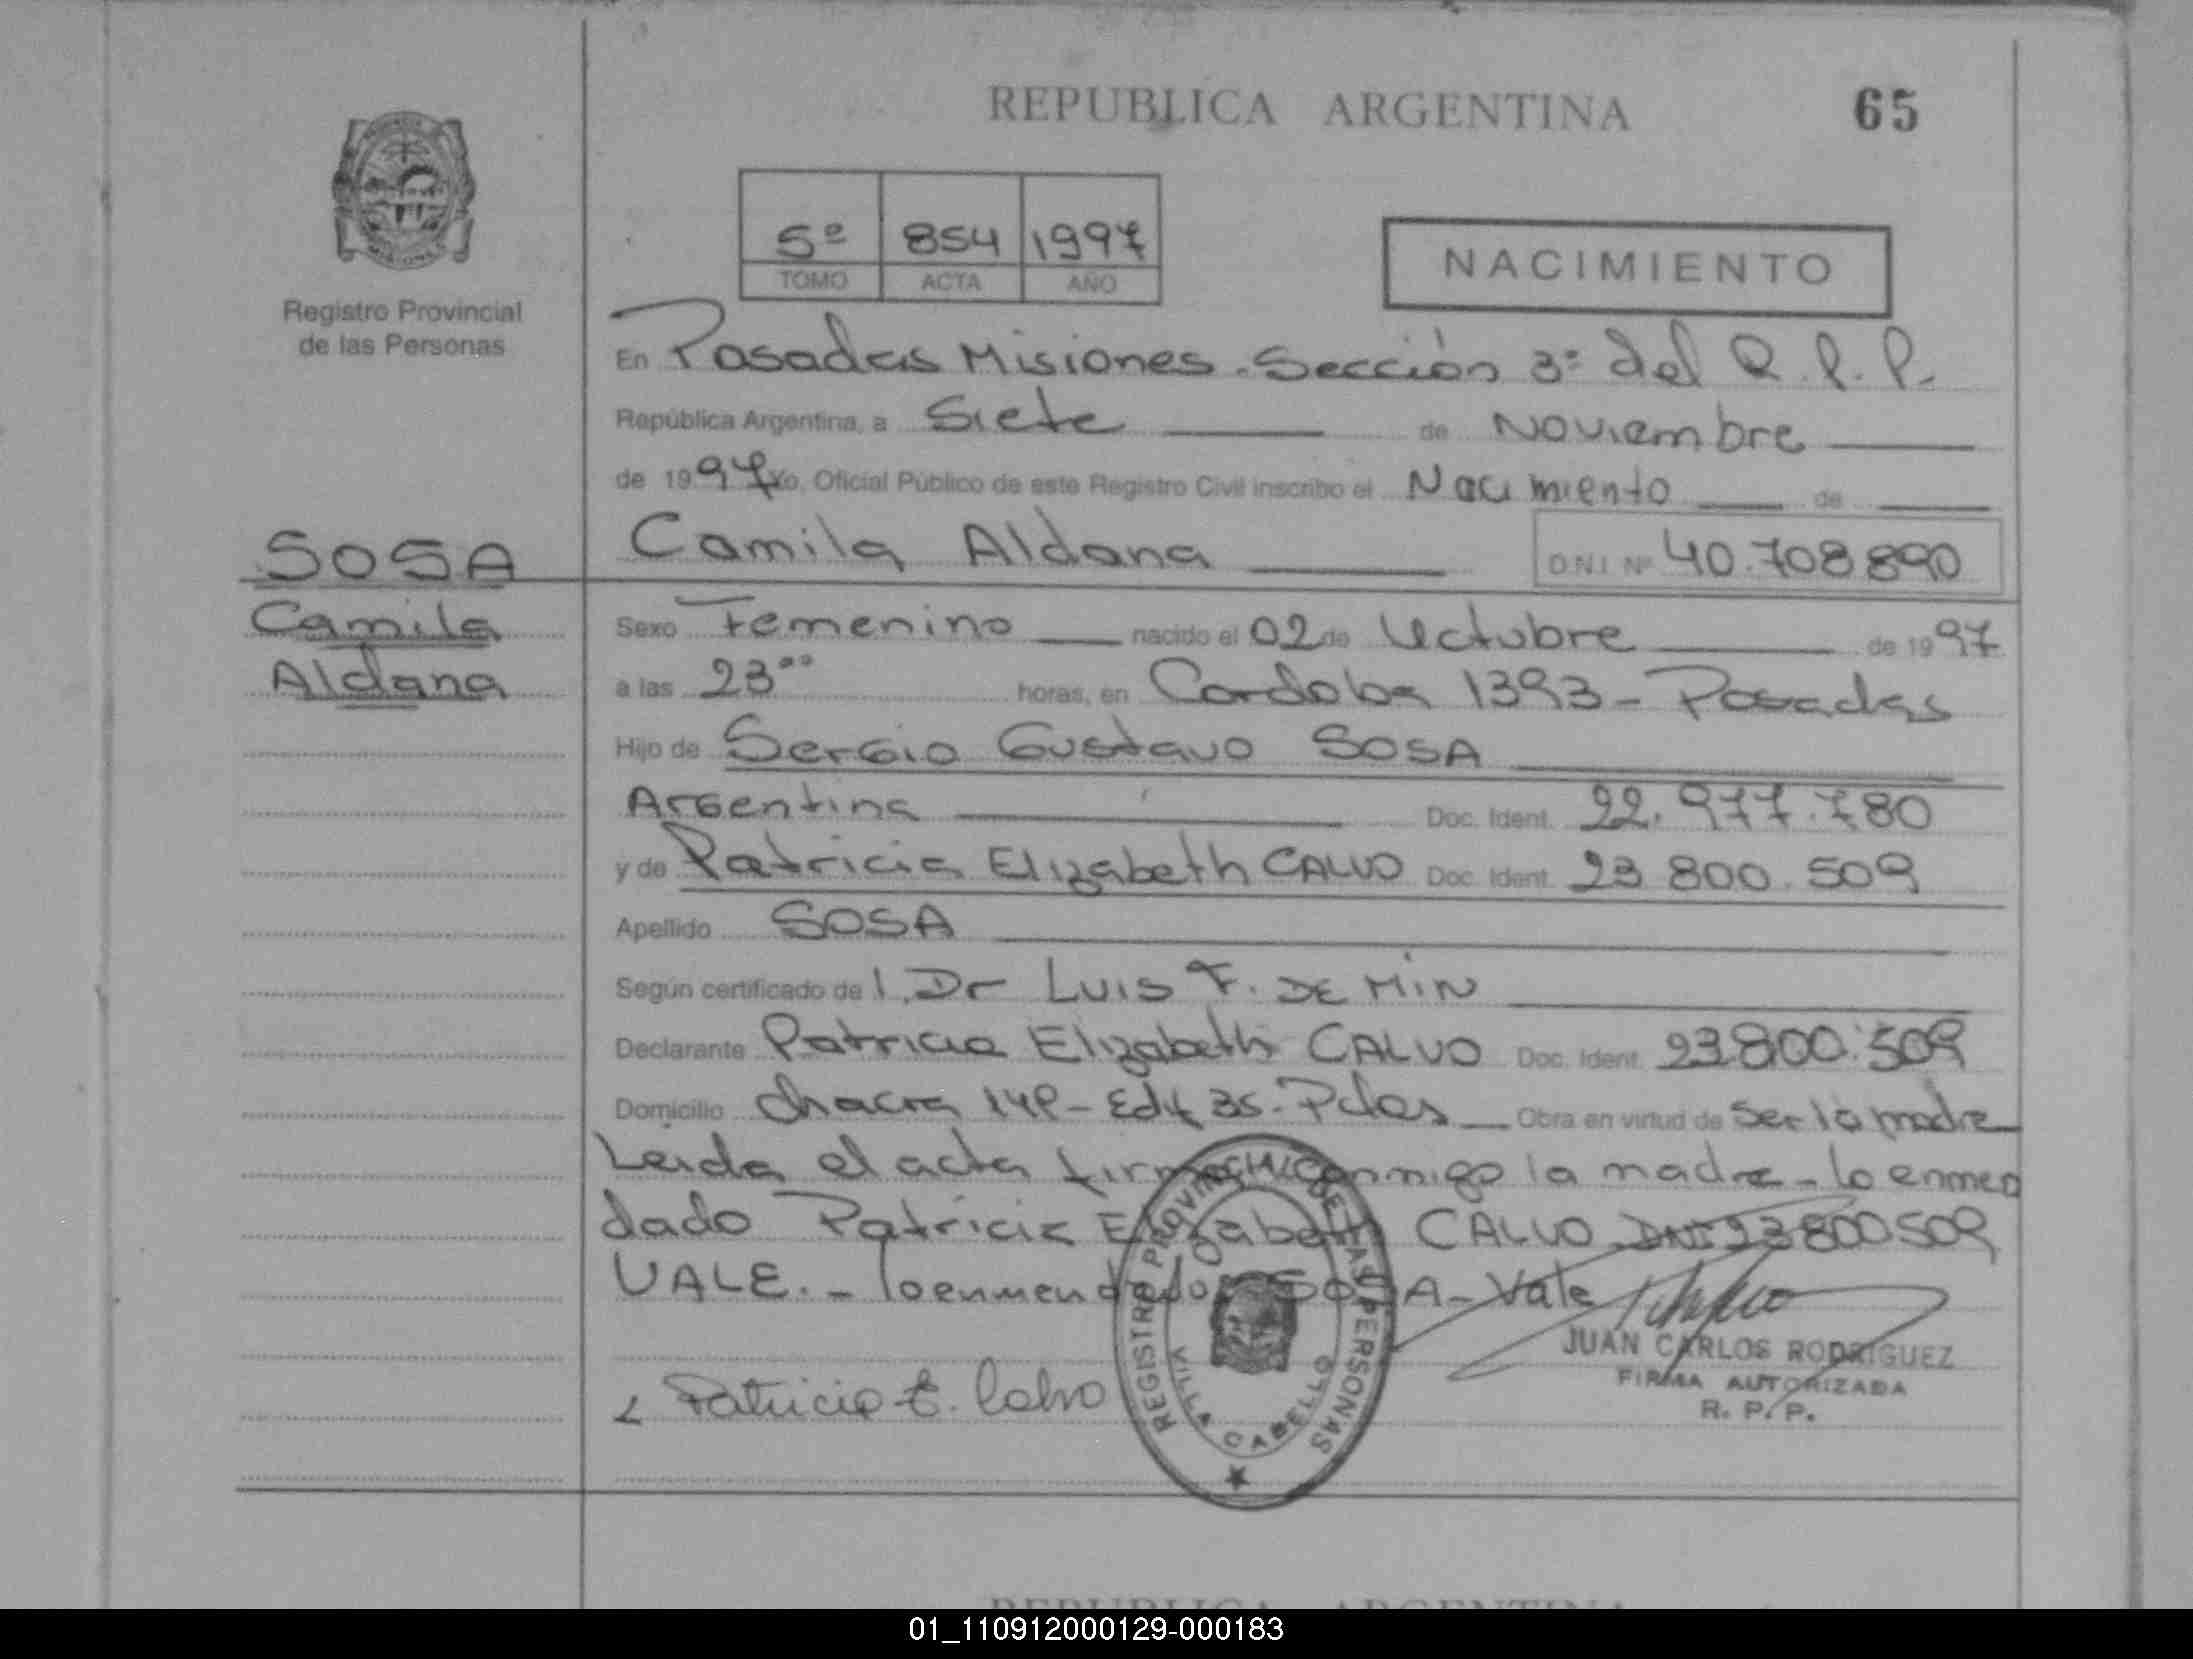 REPUBLICA ARGENTINA
65
5º 854 1997
TOMO ACTA AÑO
NACIMIENTO
Registro Provincial
de las Personas
En Posadas Misiones. Sección 3ª del R. P. P.
República Argentina, a Siete de Noviembre
de 1997 Yo, Oficial Público de este Registro Civil inscribo el Nacimiento de
SOSA
Camila
Aldana
Camila Aldana D.N.I. Nº 40.708890
Sexo Femenino nacido el 02 de Octubre de 1997
a las 23ºº horas, en Cordoba 1393 - Posadas
Hijo de Sergio Gustavo SOSA
Argentina Doc. Ident. 22.977.780
y de Patricia Elizabeth CALVO Doc. Ident. 23 800.509
Apellido SOSA
Según certificado de l. Dr Luis F. DE MIN
Declarante Patricia Elizabeth CALVO Doc. Ident. 23.800.509
Domicilio Chacra 148 - Edif 35 - Pdas Obra en virtud de Ser la madre
Leida el acta firma conmigo la madre - lo enmen
dado Patricia Elizabeth CALVO DNI 23800509
VALE. - lo enmendado SOSA - Vale
JUAN CARLOS RODRIGUEZ
FIRMA AUTORIZADA
R. P. P.
Patricia E. Calvo
REGISTRO PROVINCIAL DE LAS PERSONAS
VILLA CABELLO
REPUBLICA ARGENTINA
01_110912000129-000183